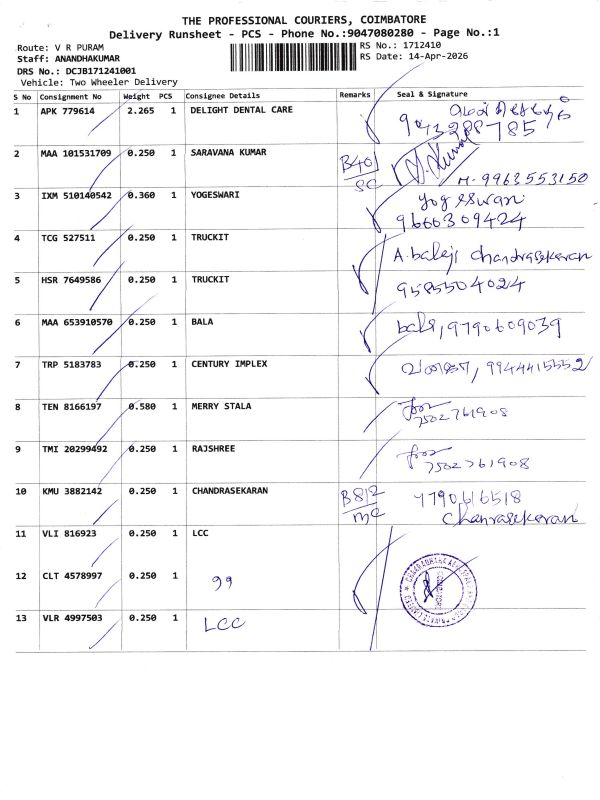 THE PROFESSIONAL COURIERS, COIMBATORE
Delivery Runsheet - PCS - Phone No.:9047080280 - Page No.:1
Route: V R PURAM
RS No.: 1712410
Staff: ANANDHAKUMAR
RS Date: 14-Apr-2026
DRS No.: DCJB171241001
Vehicle: Two Wheeler Delivery
S No Consignment No Weight PCS Consignee Details Remarks Seal & Signature
1 APK 779614 2.265 1 DELIGHT DENTAL CARE
2 MAA 101531709 0.250 1 SARAVANA KUMAR B401
SC
M-9963553150
3 IXM 510140542 0.360 1 YOGESWARI Yogeswari
9660309424
4 TCG 527511 0.250 1 TRUCKIT A. balaji chandrasekaran
5 HSR 7649586 0.250 1 TRUCKIT 9585504024
6 MAA 653910570 0.250 1 BALA bala, 9790609039
7 TRP 5183783 0.250 1 CENTURY IMPLEX 9944415552
8 TEN 8166197 0.580 1 MERRY STALA
7502761908
9 TMI 20299492 0.250 1 RAJSHREE
7502761908
10 KMU 3882142 0.250 1 CHANDRASEKARAN B812
MC
9790616518
Chanrasekaran
11 VLI 816923 0.250 1 LCC
12 CLT 4578997 0.250 1 99
13 VLR 4997503 0.250 1 LCC